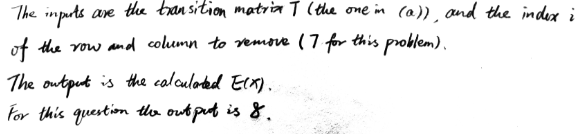 The inputs are the transition matrix T (the one in (a)), and the index i
of the row and column to remove (7 for this problem).
The output is the calculated E(X).
For this question the output is 8.